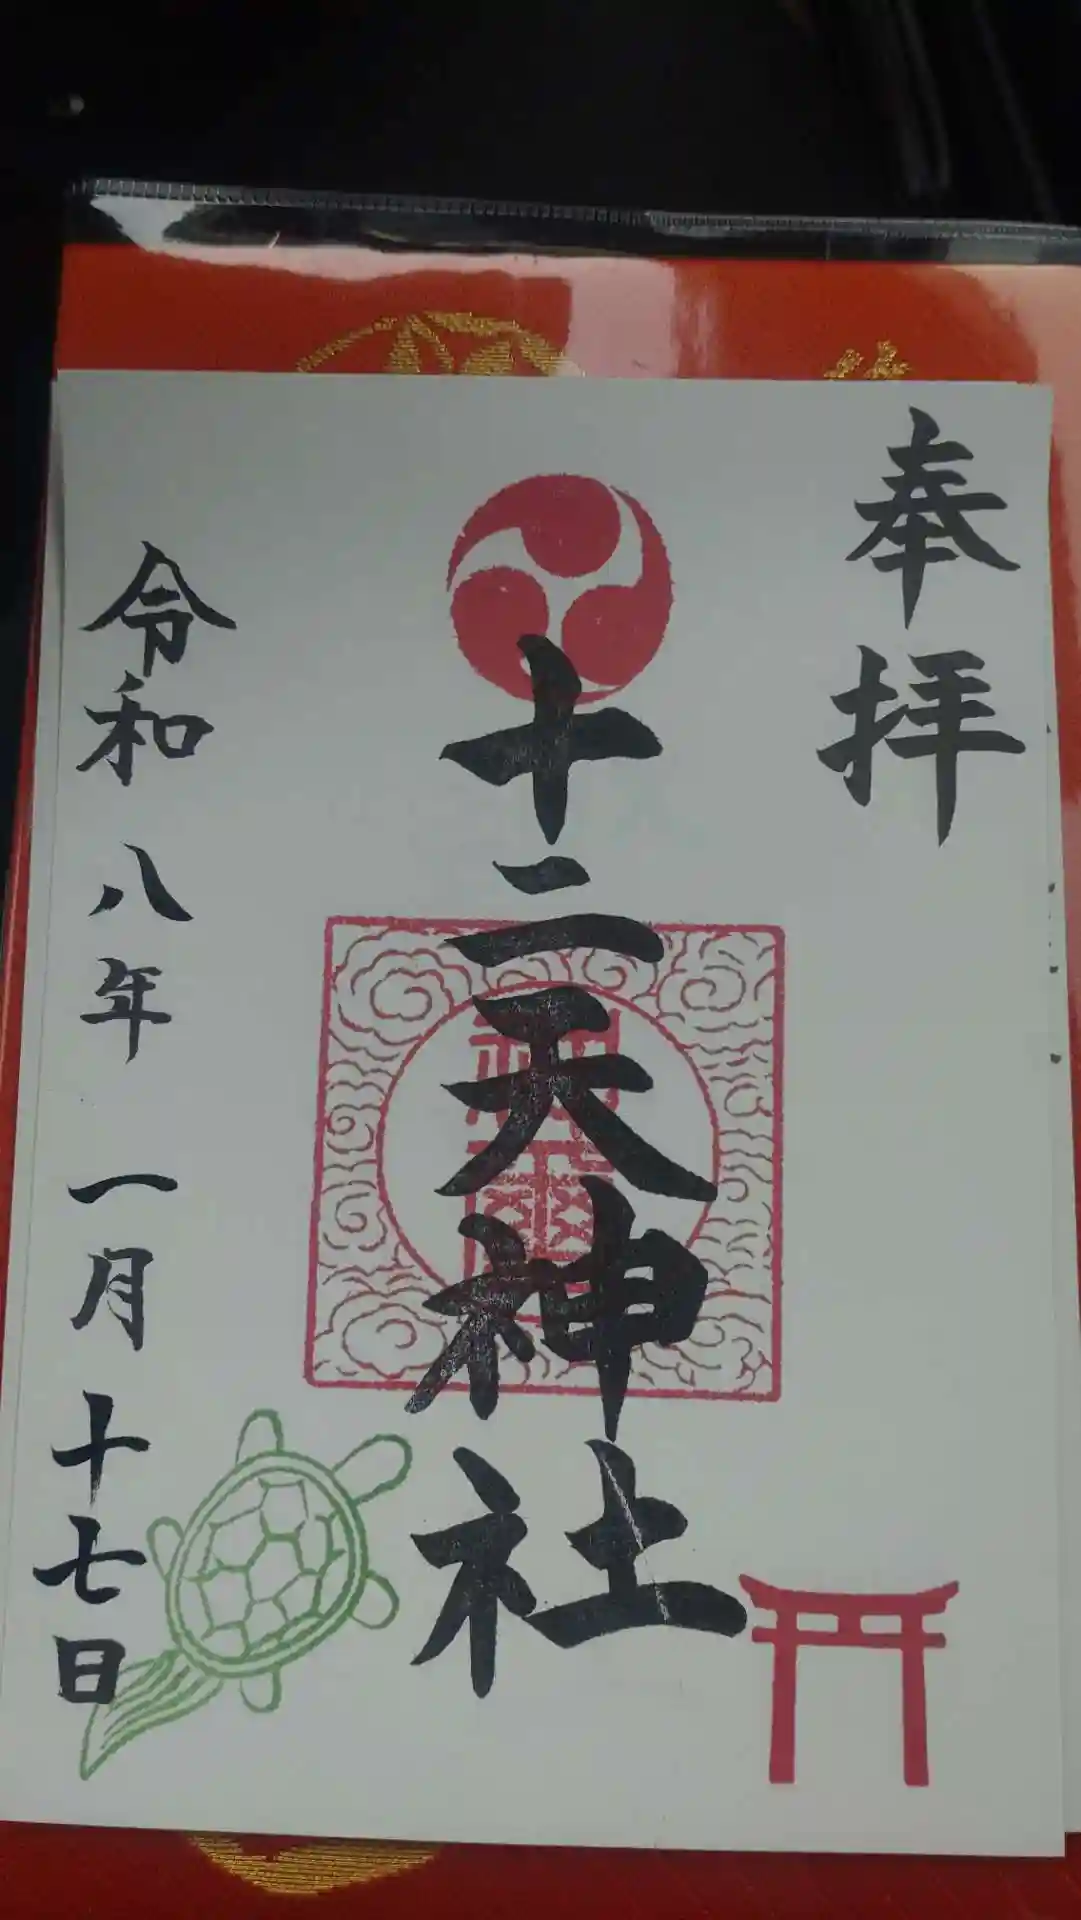 奉拝
十二天神社
令和八年一月十七日